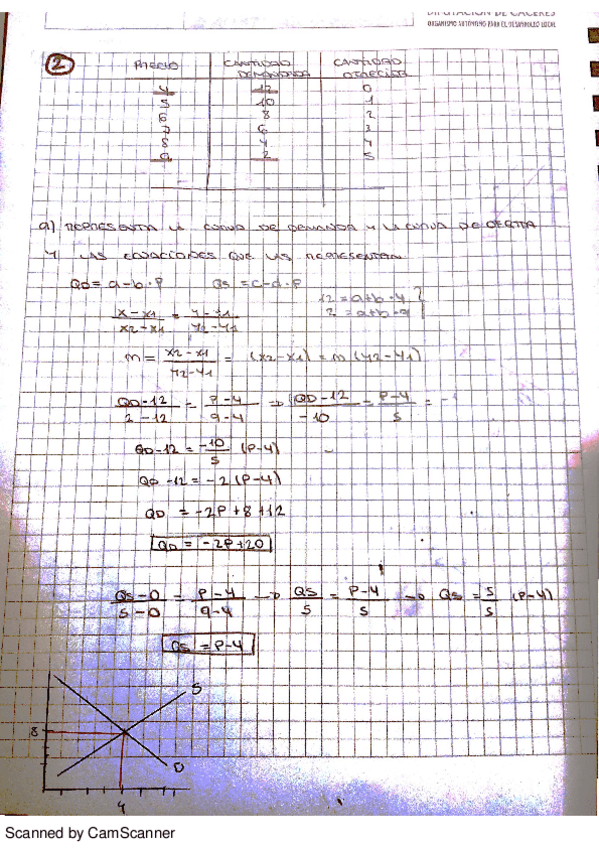 DIPUTACIÓN DE CÁCERES
ORGANISMO AUTÓNOMO PARA EL DESARROLLO LOCAL
2 PRECIO CANTIDAD DEMANDADA CANTIDAD OFRECIDA
4 12 0
5 10 1
6 8 2
7 6 3
8 4 4
9 2 5
a) REPRESENTA LA CURVA DE DEMANDA Y LA CURVA DE OFERTA
Y LAS ECUACIONES QUE LAS REPRESENTAN.
QD = a-b·P QS = c-d·P
12 = a+b·4
2 = a+b·9
x-x1 / x2-x1 = y-y1 / y2-y1
m = x2-x1 / y2-y1 = (x2-x1) = m (y2-y1)
QD-12 / 2-12 = P-4 / 9-4 → QD-12 / -10 = P-4 / 5 =
QD-12 = -10/5 (P-4)
QD-12 = -2(P-4)
QD = -2P+8+12
QD = -2P+20
QS-0 / 5-0 = P-4 / 9-4 → QS / 5 = P-4 / 5 → QS = 5/5 (P-4)
QS = P-4
S
8
D
4
Scanned by CamScanner